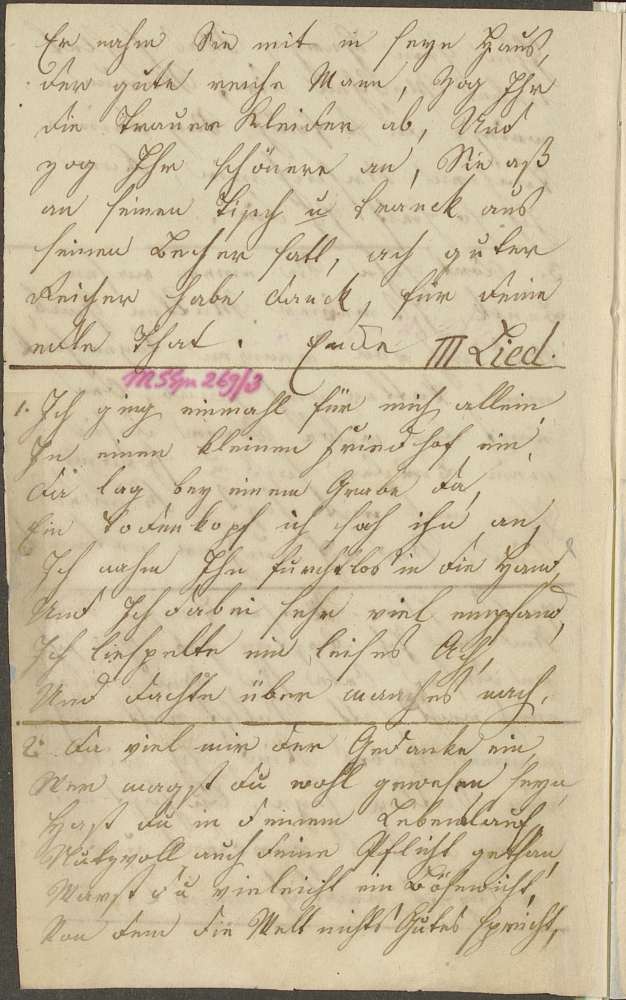 Er nahm Sie mit in seyn Haus,
der gute reiche Mann, Zog Ihr
die Trauer Kleider ab, Und
zog Ihr schönere an, Sie aß
an seinen Tisch u tranck aus
seinen Becher satt, ach guter
Reicher habe danck, für deine
edle That. Ende III Lied.
MSGm 269/3
1. Ich ging einmahl für mich allein,
In einen kleinen Friedhof ein,
da lag bey einem Grabe da,
Ein Todenkopf ich sah ihn an,
Ich nahm Ihn furchtlos in die Hand,
Und Ich dabei sehr viel empfand,
Ich liespelte ein leises Ach,
Und dachte über manches nach.
2. da viel mir der Gedanke ein,
Wer magst du wohl gewesen seyn,
Hast du in deinem Lebenslauf,
Nutzvoll auch deine Pflicht gethan,
Warst du vieleicht ein Bösewicht,
Von dem die Welt nichts Gutes spricht,